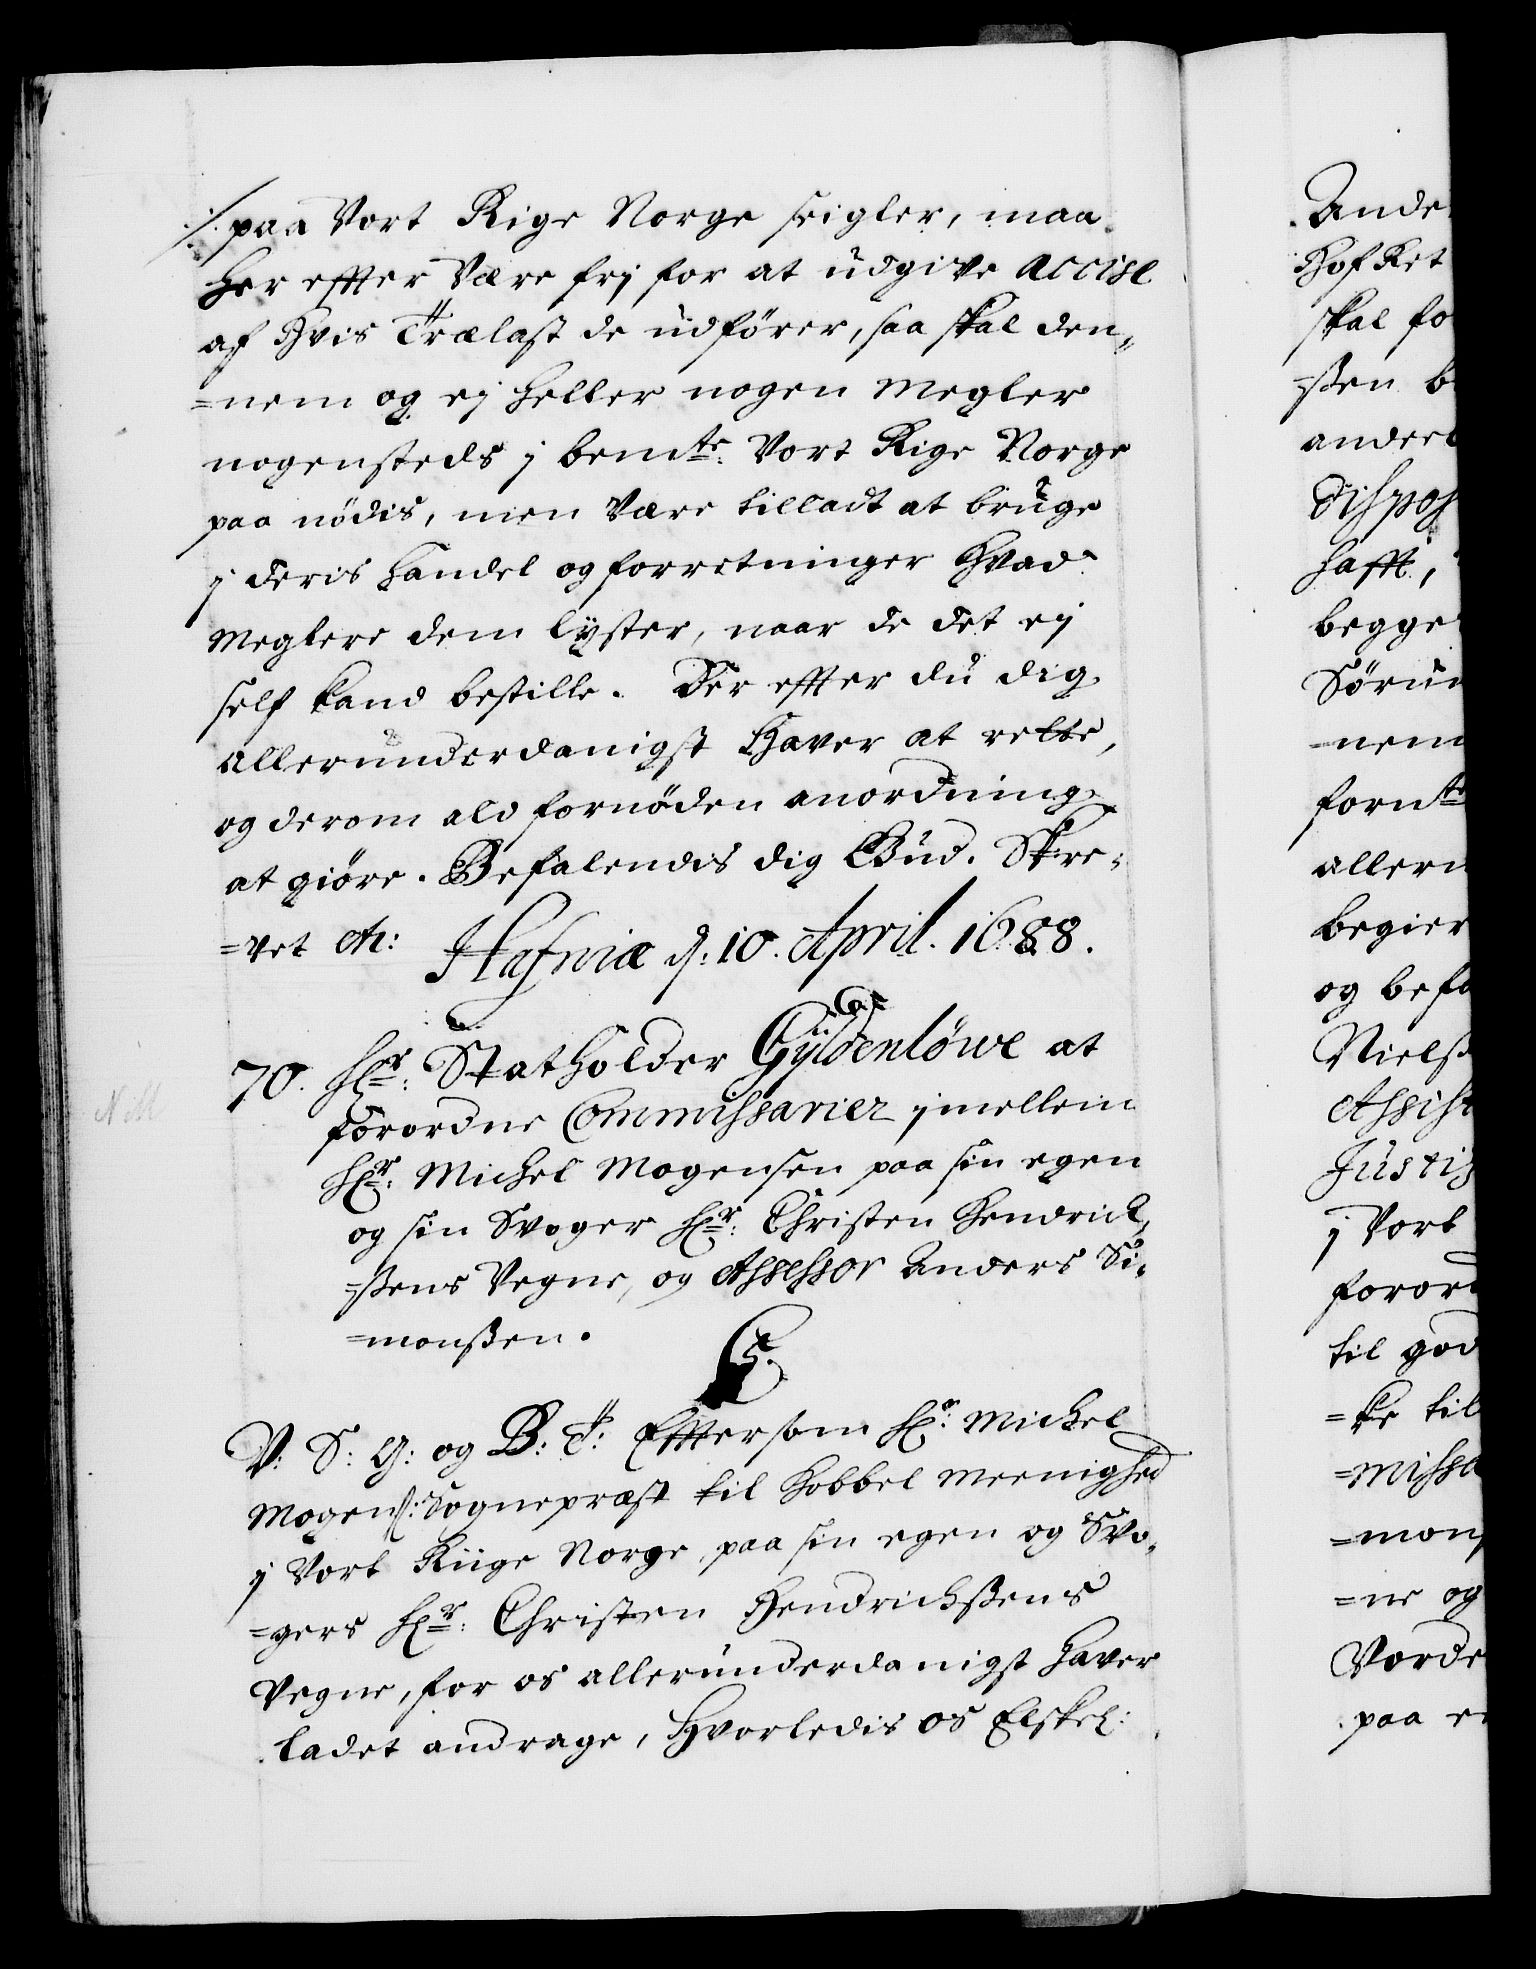 ./. paa Vort Rige Norge seigler, maa
her effter Være frj for at udgive accise
af Hvis Trælast de udfører, saa skal den,,
=nem og ej heller nogen Megler
nogensteds j bemte Vort Rige Norge
paa nødis, men Være tilladt at bruge
j deris handel og forretninger Hvad
Meglere dem lyster, naar de det ej
self kand bestille. Der effter du dig
allerunderdanigst Haver at rette,
og derom ald fornøden anordning
at giøre. Befalendis dig Gud. Skre,
=vet etc: Hafniæ d: 10. April. 1688.
70. Hr: Statholder Gyldenløwe at
forordne Commissarier jmellem
Hr: Michel Mogensen paa sin egen
og sin Svoger Hr: Christen Hendrick,
=ssens Vegne, og Assessor Anders Si,
=monssen.
C5.
V: S: G: og B: T: Efftersom Hr: Michel
Mogens: Sognepræst til Hobbel Meenighed
j Vort Riige Norge, paa sin egen og Svo,
=gers Hr: Christen Hendrickssens
Vegne, for os allerunderdanigst haver
ladet andrage, Hvorledis os Elskel:
Ande
Hof Ret
skal fo
=ssen b
anderl
dispos
hafft,
begge
Sørum
=nem
fornte
allern
begier
og befa
Nielss
Assist
Justiz
j Vort
foror
til god
=ke til
=missa
=mons
=ne og
Vorde
paa e